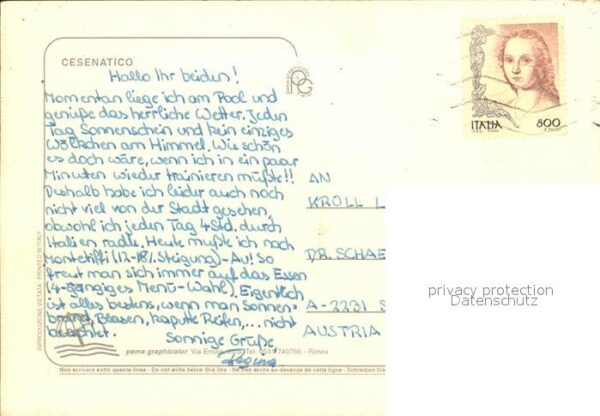 CESENATICO
Hallo Ihr beiden!
Momentan liege ich am Pool und
genieße das herrliche Wetter. Jeden
Tag Sonnenschein und kein einziges
Wölkchen am Himmel. Wie schön
es doch wäre, wenn ich in ein paar
Minuten wieder trainieren müßte!!
Deshalb habe ich leider auch noch
nicht viel von der Stadt gesehen,
obwohl ich jeden Tag 4 Std. durch
Italien radle. Heute mußte ich nach
(12-18% Steigung) - Au! So
freut man sich immer auf das Essen
(4-gängiges Menü-Wahl). Eigentlich
ist alles bestens, wenn man Sonnen-
brand, Blasen, kaputte Reifen, ... nicht
beachtet.
Sonnige Grüße
Regina
PG
ITALIA
800
AN
KROLL L
DR. SCHAE
A-2231 S
AUSTRIA
privacy protection
Datenschutz
RIPRODUZIONE VIETATA PRINTED IN ITALY
pama graphicolor Via Emilia Tel. 0541/740766 - Rimini
Non scrivere sotto questa linea - Do not write below this line - Ne rien écrire au-dessous de cette ligne - Schreiben Sie